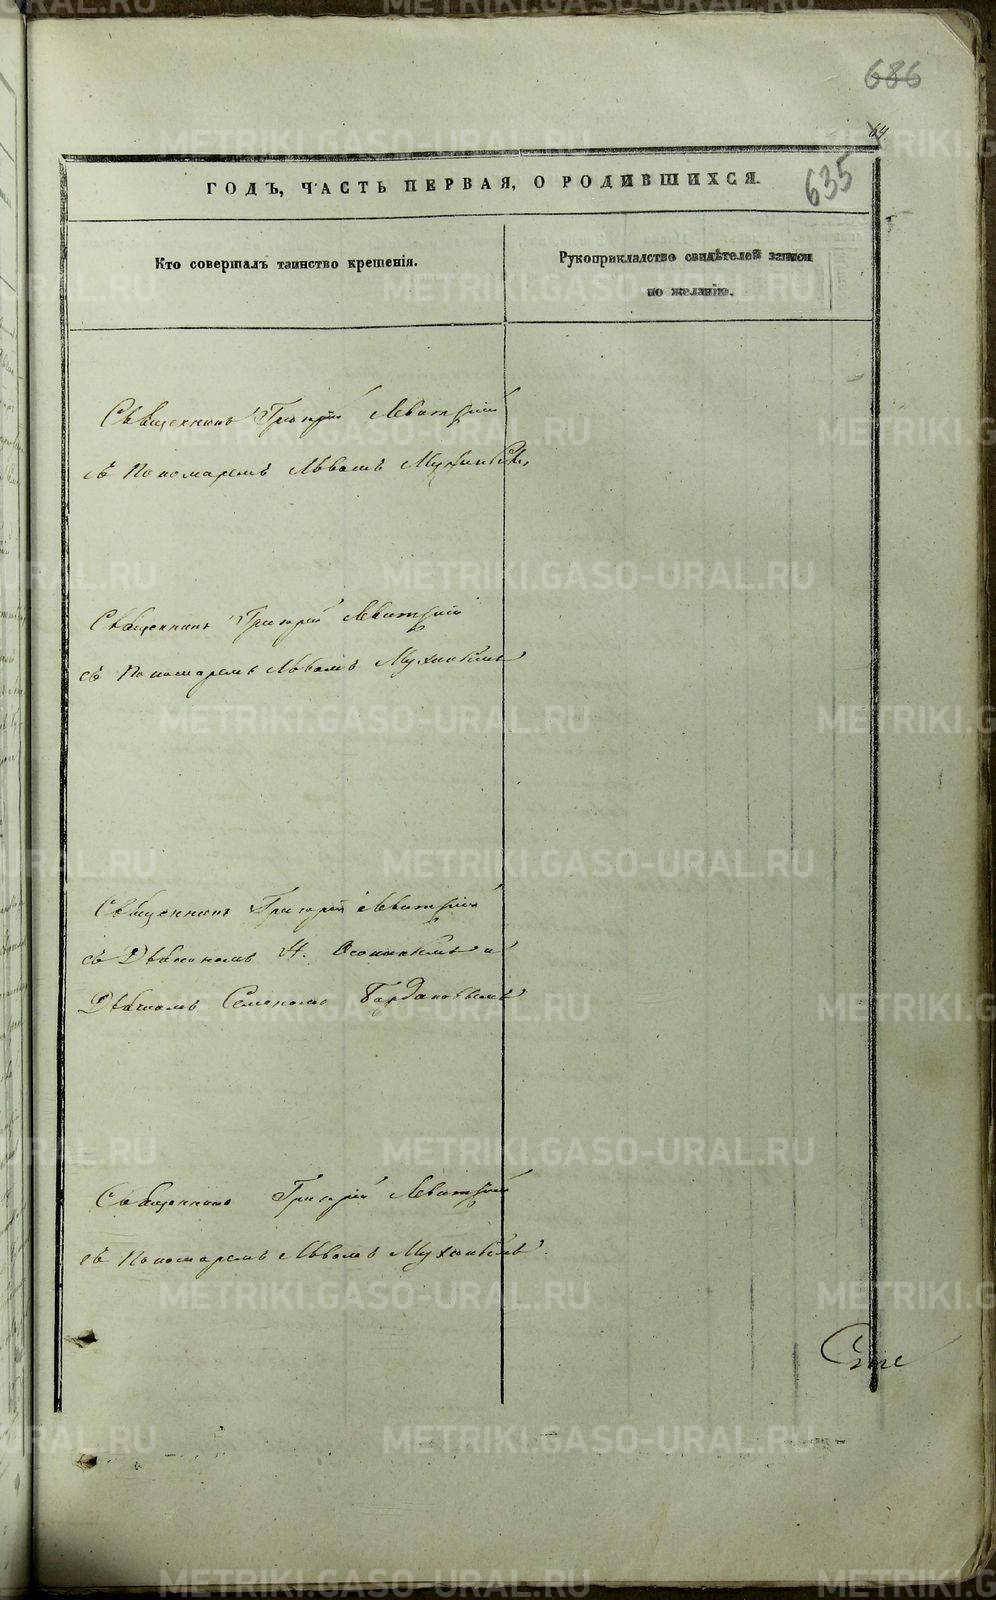 686
64
635
ГОДЪ, ЧАСТЬ ПЕРВАЯ, О РОДИВШИХСЯ.
Кто совершалъ таинство крещенія.
Рукоприкладство свидѣтелей записи
по желанію.
Священникъ Григорій Левитскій
съ Пономаремъ Львомъ Мухинымъ
Священникъ Григорій Левитскій
съ Пономаремъ Львомъ Мухинымъ
Священникъ Григорій Левитскій
съ Діакономъ И. и
Дьячкомъ Семеномъ
Священникъ Григорій Левитскій
съ Пономаремъ Львомъ Мухинымъ.
METRIKI.GASO-URAL.RU